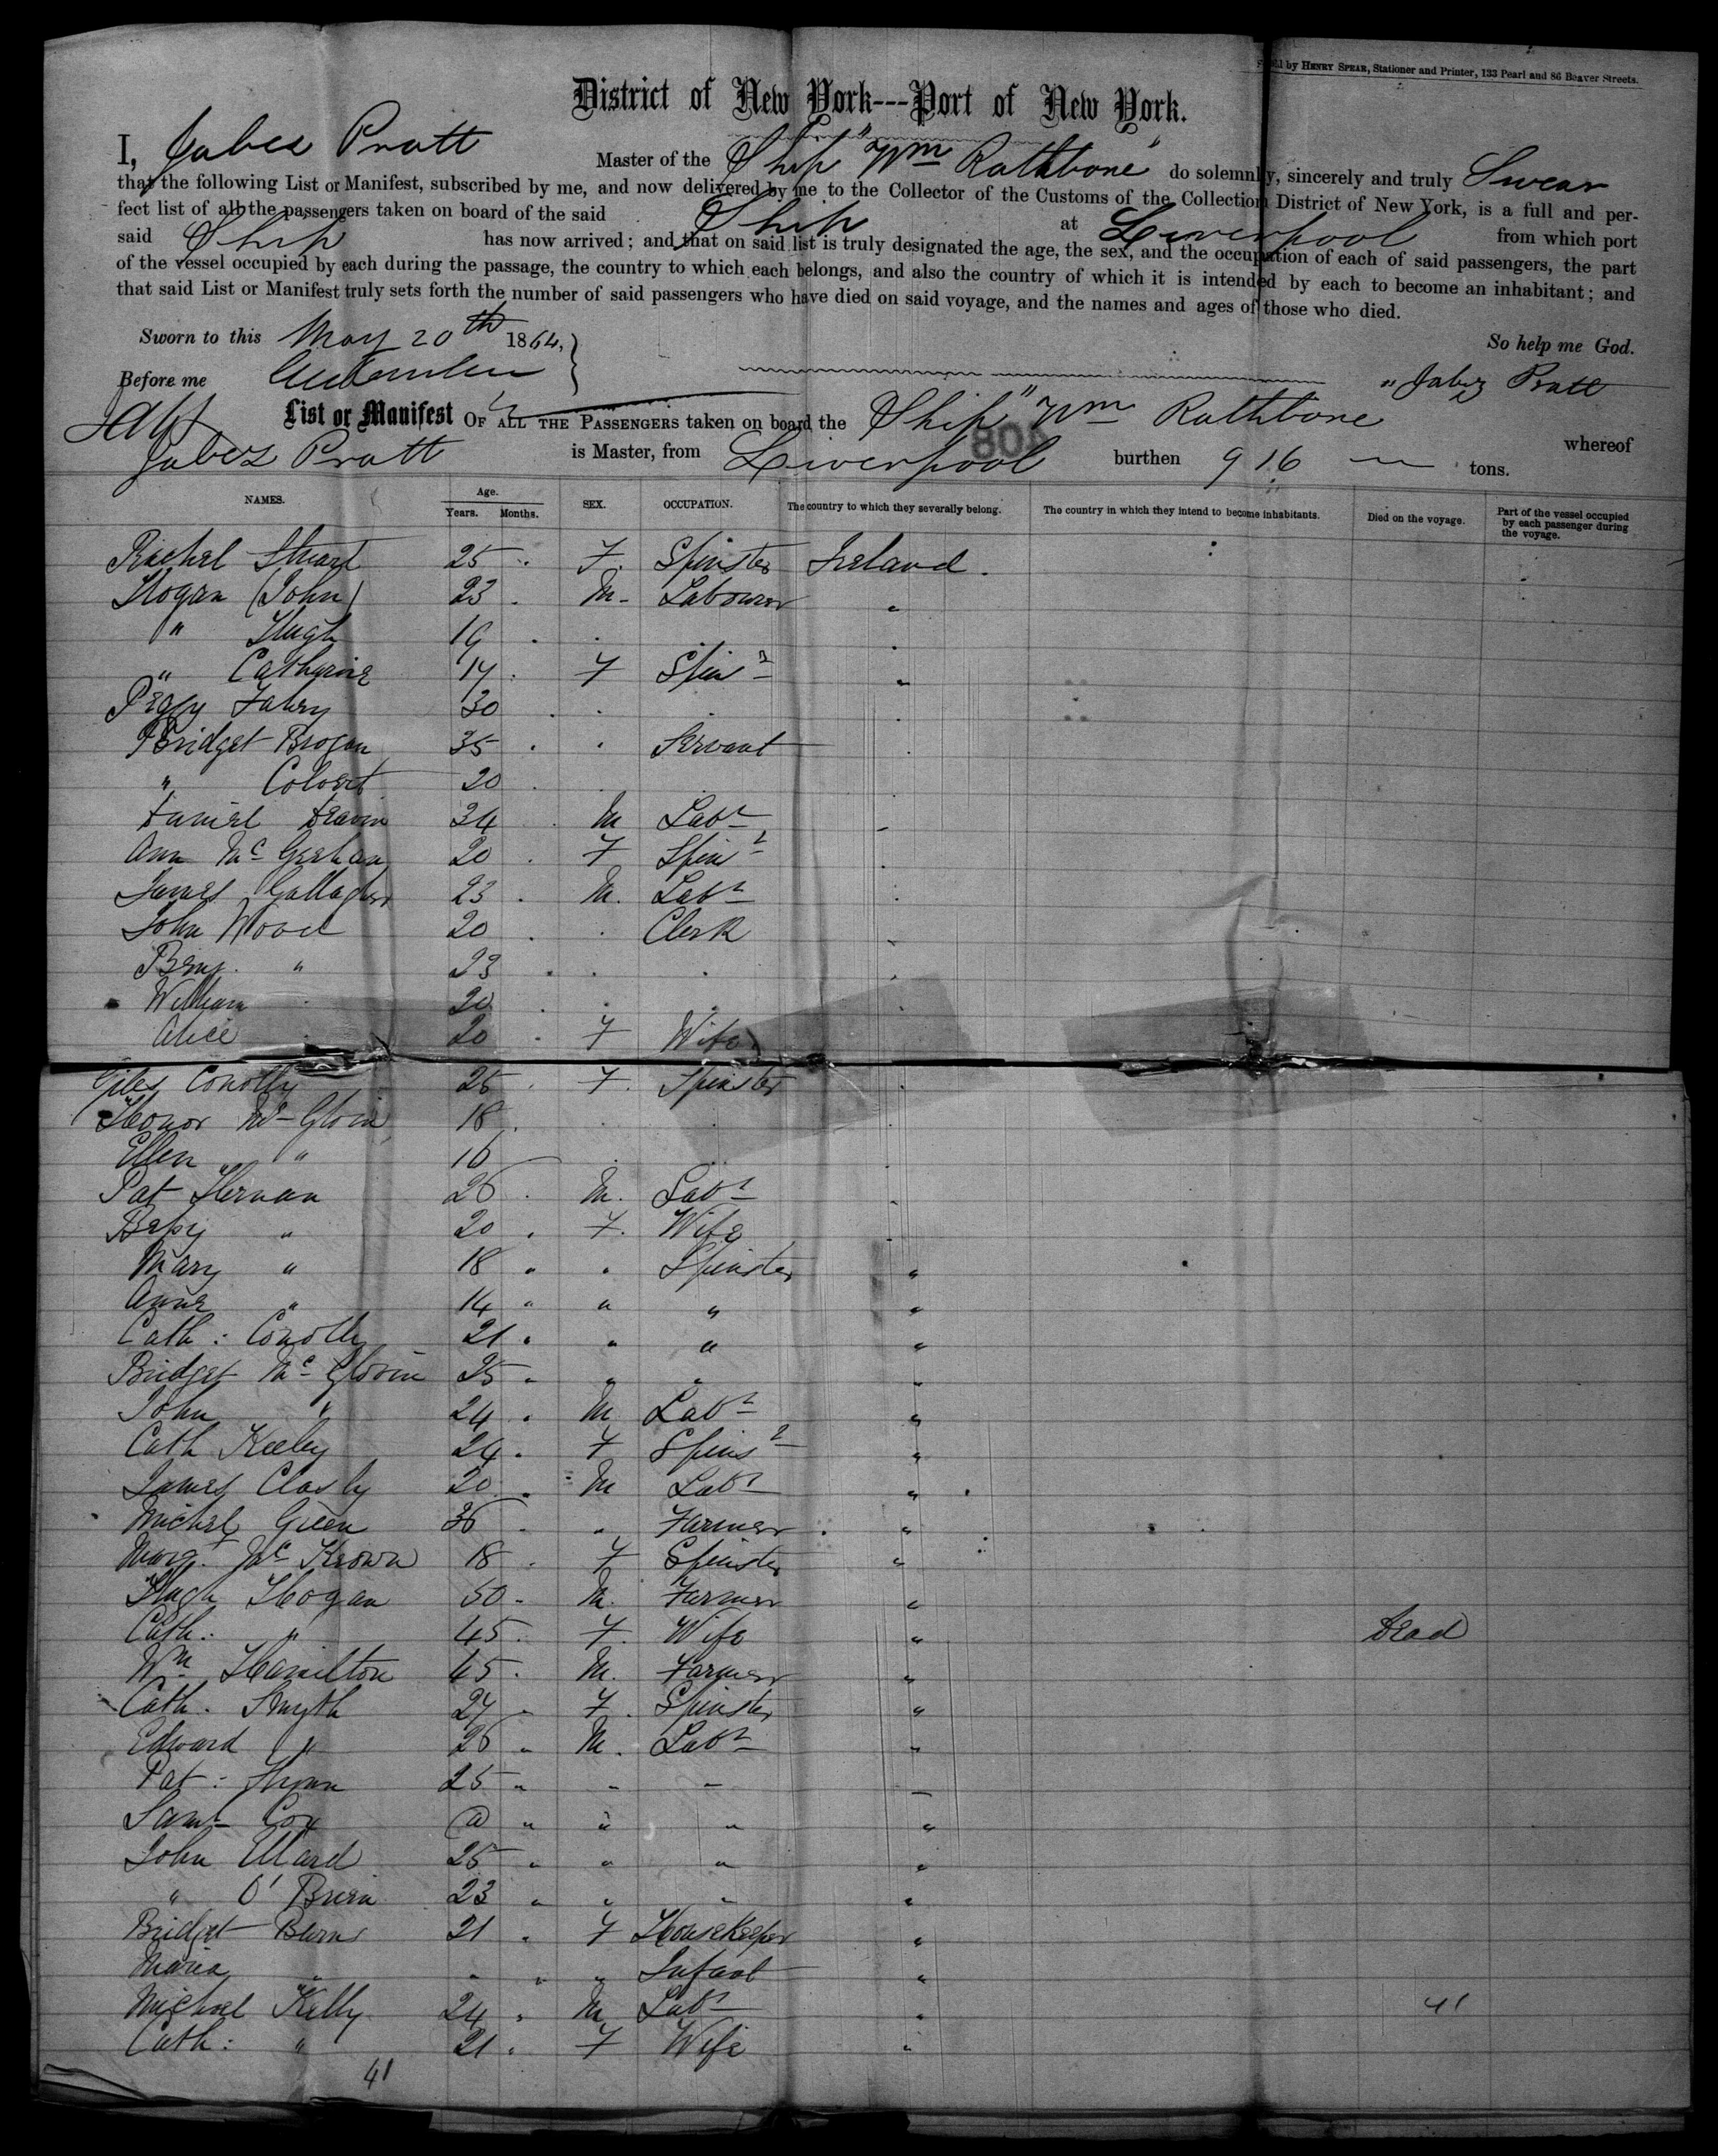 Printed by HENRY SPEAR, Stationer and Printer, 133 Pearl and 86 Beaver Streets.
District of New York---Port of New York.
I, Jabez Pratt Master of the Ship "Wm Rathbone" do solemnly, sincerely and truly Swear
that the following List or Manifest, subscribed by me, and now delivered by me to the Collector of the Customs of the Collection District of New York, is a full and per-
fect list of all the passengers taken on board of the said Ship at Liverpool from which port
said Ship has now arrived; and that on said list is truly designated the age, the sex, and the occupation of each of said passengers, the part
of the vessel occupied by each during the passage, the country to which each belongs, and also the country of which it is intended by each to become an inhabitant; and
that said List or Manifest truly sets forth the number of said passengers who have died on said voyage, and the names and ages of those who died.
Sworn to this May 20th 1864, So help me God.
Before me Jabez Pratt
List or Manifest OF ALL THE PASSENGERS taken on board the Ship "Wm Rathbone whereof
Jabez Pratt is Master, from Liverpool burthen 916 tons.
NAMES. Age. Years. Months. SEX. OCCUPATION. The country to which they severally belong. The country in which they intend to become inhabitants. Died on the voyage. Part of the vessel occupied by each passenger during the voyage.
Rachel Stuart 25 F. Spinster Ireland.
Hogan (John) 23 M. Labourer "
" Hugh 19
" Catharine 17 F Spinr "
Peggy Fahey 30
Bridget Brogan 35 Servant
" Colvert 20
Daniel Deavin 34 M Labr
Ann Mc 20 F Spinr
James Gallagher 23 M. Labr
John Wood 20 Clerk
Benj. " 23
William 20
Alice 20 F Wife
Giles Conolly 25 F. Spinster
Honor Mc Gloin 18
Ellen " 16
Pat Hernan 26 M. Labr
Betsy " 20 F. Wife
Mary " 18 " Spinster "
Anne " 14 " " " "
Cath: Conolly 21 " " " "
Bridget Mc Gloin 25 " " " "
John " 24 M Labr "
Cath Keeley 24 F Spinsr "
James Clasby 20 M Labr "
Michel Green 36 " Farmer "
Margt. Mc Keown 18 F Spinster "
Hugh Hogan 50 M. Farmer "
Cath: " 45 F. Wife " Dead
Wm Hamilton 45 M. Farmer "
Cath. Smyth 27 F. Spinster "
Edward " 26 M. Labr "
Pat: 25 " " "
Saml Cox " " " "
John Ward 25 " " " "
" O'Brien 23 " " " "
Bridget Burns 21 F Housekeeper "
Maria " " " " Infant "
Michael Kelly 24 M Labr " 41
Cath: " 21 F Wife "
41